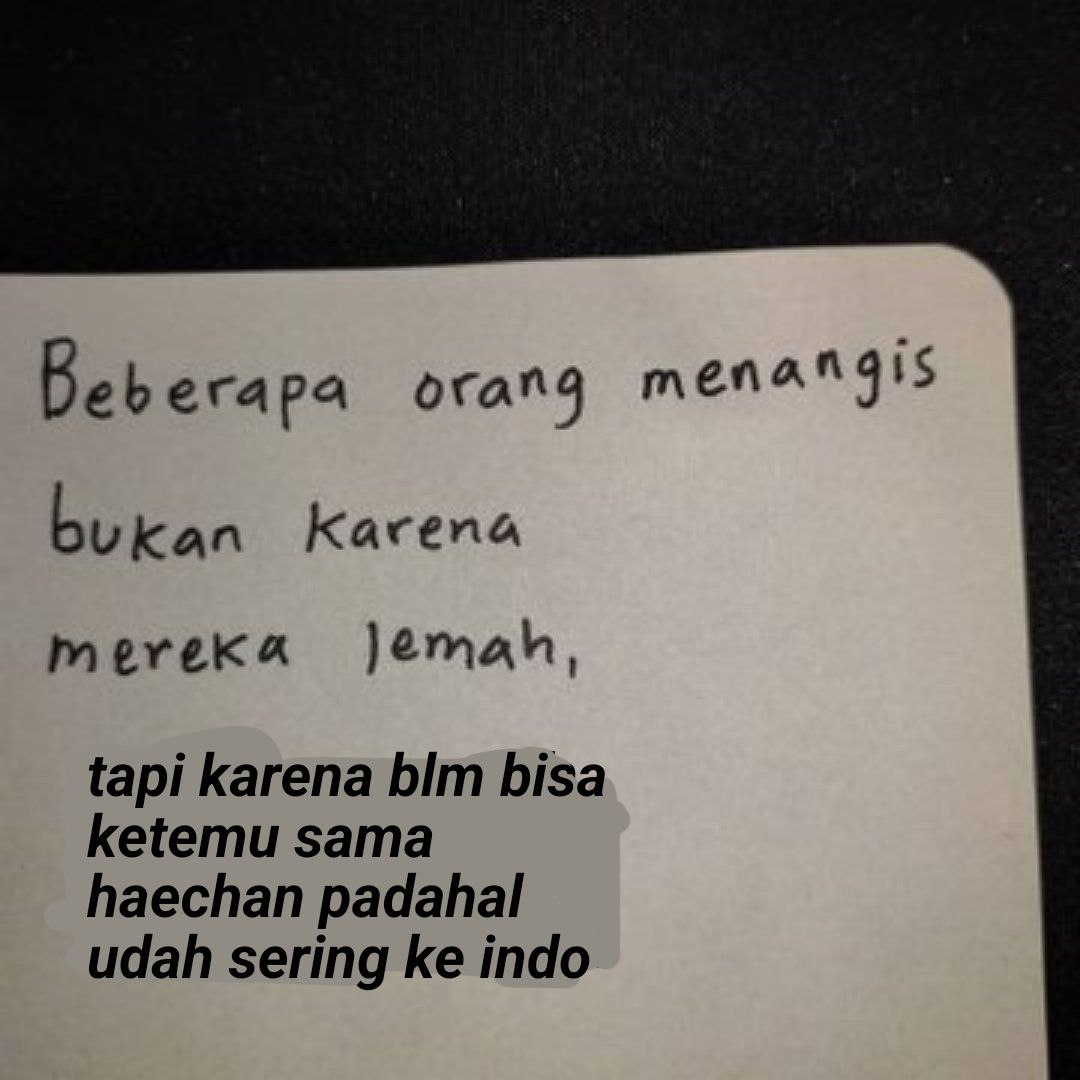 Beberapa orang menangis
bukan karena
mereka lemah,
tapi karena blm bisa
ketemu sama
haechan padahal
udah sering ke indo